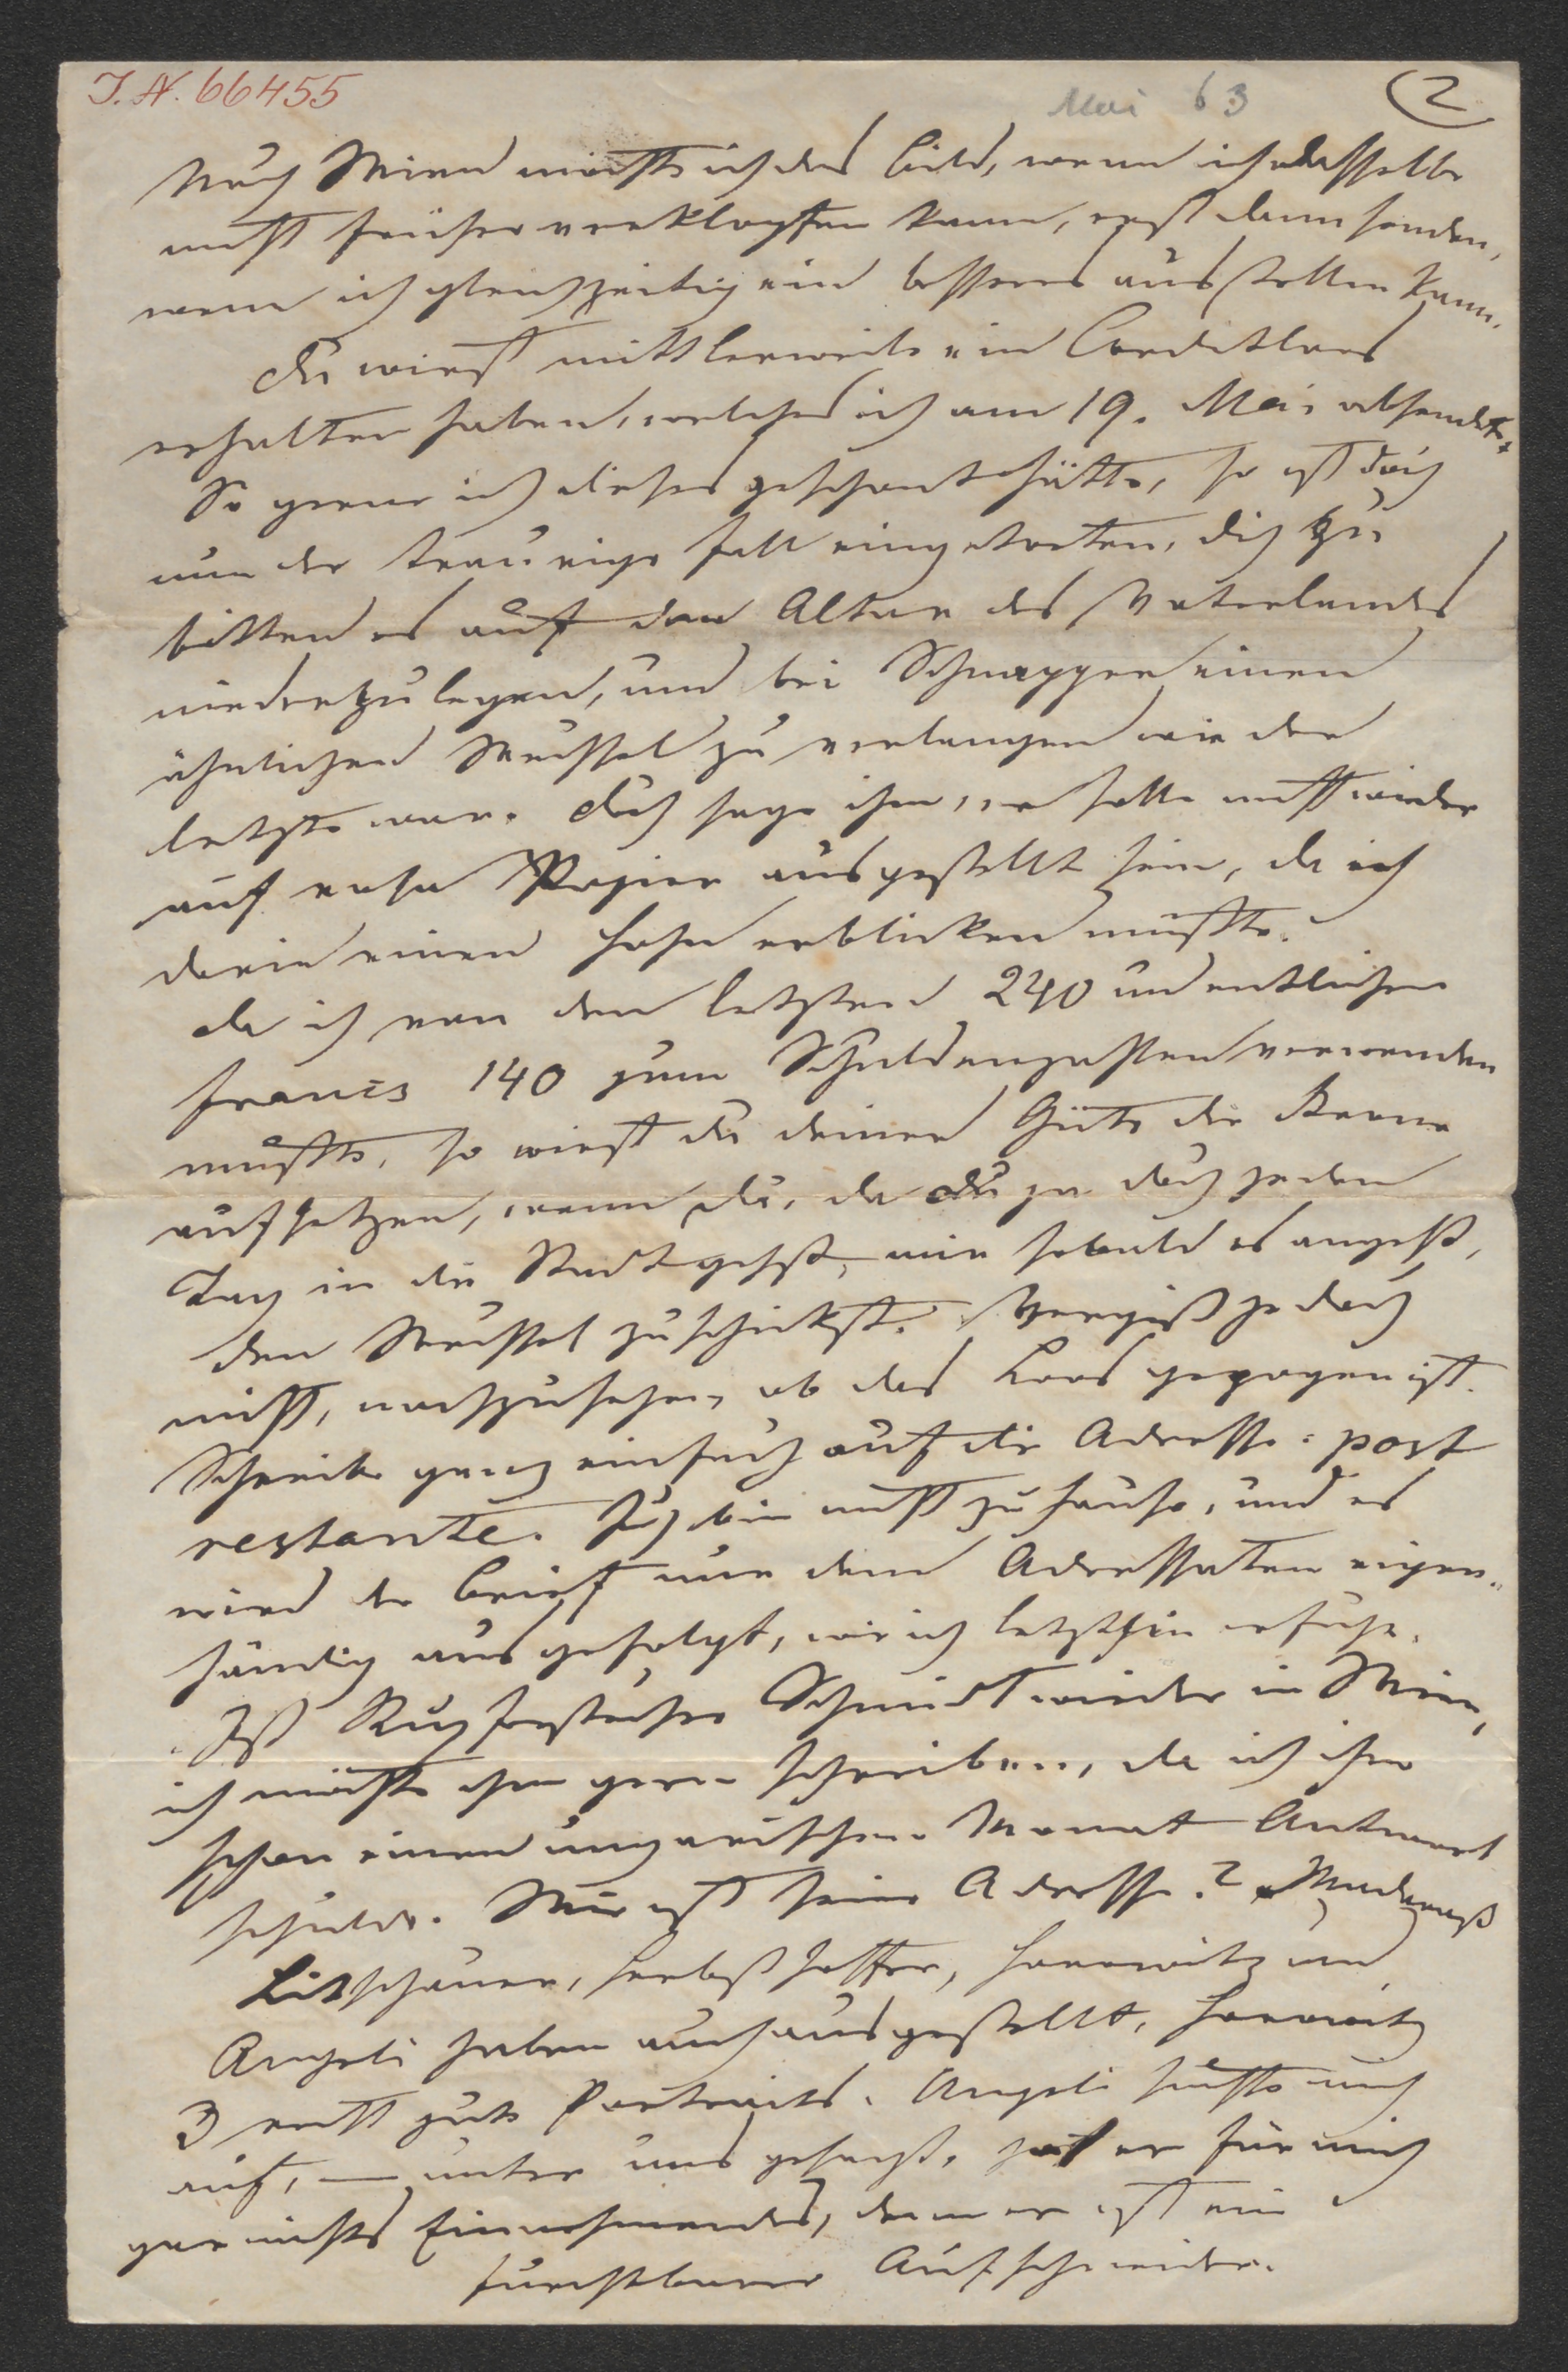 I. N. 66455
Mai 63
2
Nach Wien möchte ich das Bild, wenn ich dasselbe
nicht früher verklopfen kann, erst dann senden,
wenn ich gleichzeitig ein besseres ausstellen kann.
Du wirst mittlerweile ein Creditloos
erhalten haben, welches ich am 19. Mai absendete.
So gerne ich dieses geschont hätte, so ist doch
nun der traurige Fall eingetreten, dich zu
bitten es auf den Altar des Vaterlandes
niederzulegen, und bei Schnapper einen
ähnlichen Wechsel zu verlangen wie der
letzte war. Doch sage ihm, er solle nicht wieder
auf rosa Papier ausgestellt sein, da ich
darin einen Hohn erblicken müßte.
Da ich von den letzten 240 unendlichen
francs 140 zum Schuldenzahlen verwenden
mußte, so wirst du deiner Güte die Krone
aufsetzen, wenn du, da du ja doch jeden
Tag in die Stadt gehst, mir sobald es angeht,
den Wechsel zuschickst. Vergiß jedoch
nicht, nachzusehen, ob das Loos gezogen ist.
Schreibe ganz einfach auf die Adresse: post
restante. Ich bin nicht zu Hause, und es
wird der Brief nur dem Adressaten eigen-
händig ausgefolgt, wie ich letzthin erfuhr.
Ist Kupferstecher Schmidt wieder in Wien,
ich möchte ihm gern schreiben, da ich ihm
schon einen ungarischen Monat Antwort
schulde. Wie ist seine Adresse?
Litschauer, Herbsthoffer, Horowitz und
Angeli haben auch ausgestellt, Horowitz
3 recht gute Portraits. Angeli suchte mich
auf, — unter uns gesagt, hat er für mich
gar nichts Einnehmendes, denn er ist ein
furchtbarer Aufschneider.